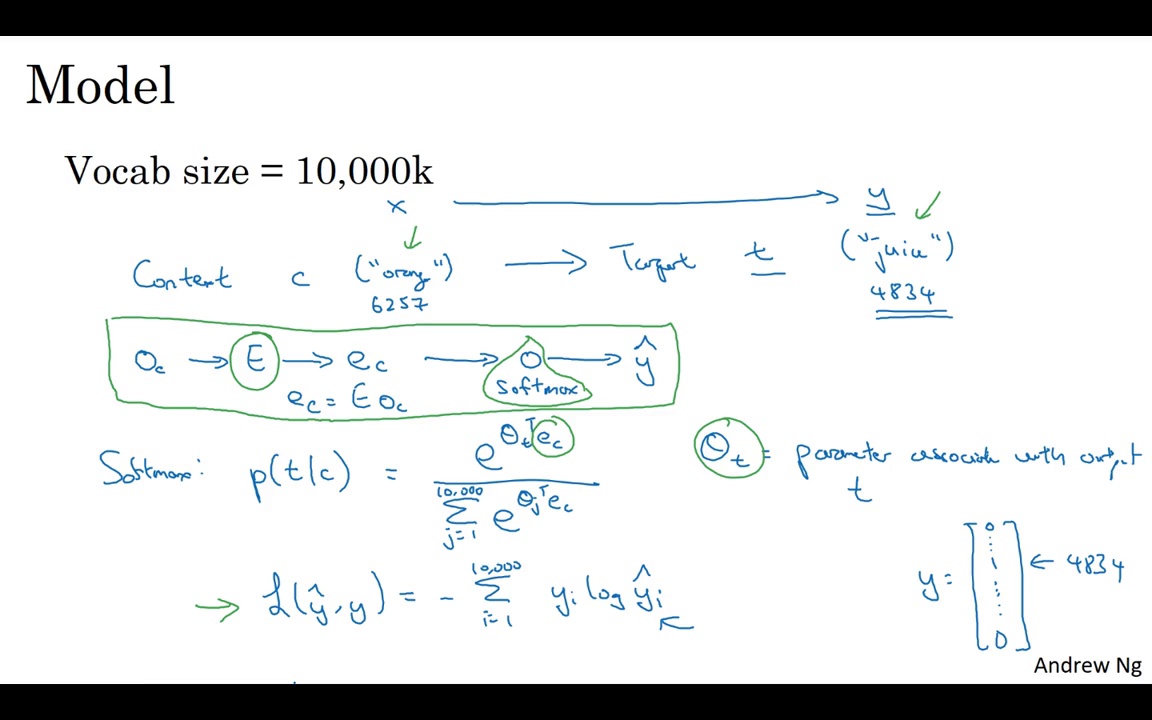 Model
Vocab size = 10,000k
x → y
Context c ("orange") → Target t ("juice")
6257 4834
O_c → E → e_c → O → ŷ
softmax
e_c = E O_c
Softmax: p(t|c) = e^{θ_t^T e_c} / Σ_{j=1}^{10,000} e^{θ_j^T e_c}
θ_t = parameter associate with output t
L(ŷ, y) = - Σ_{i=1}^{10,000} y_i log ŷ_i
y = [0 ⋮ 1 ⋮ 0] ← 4834
Andrew Ng